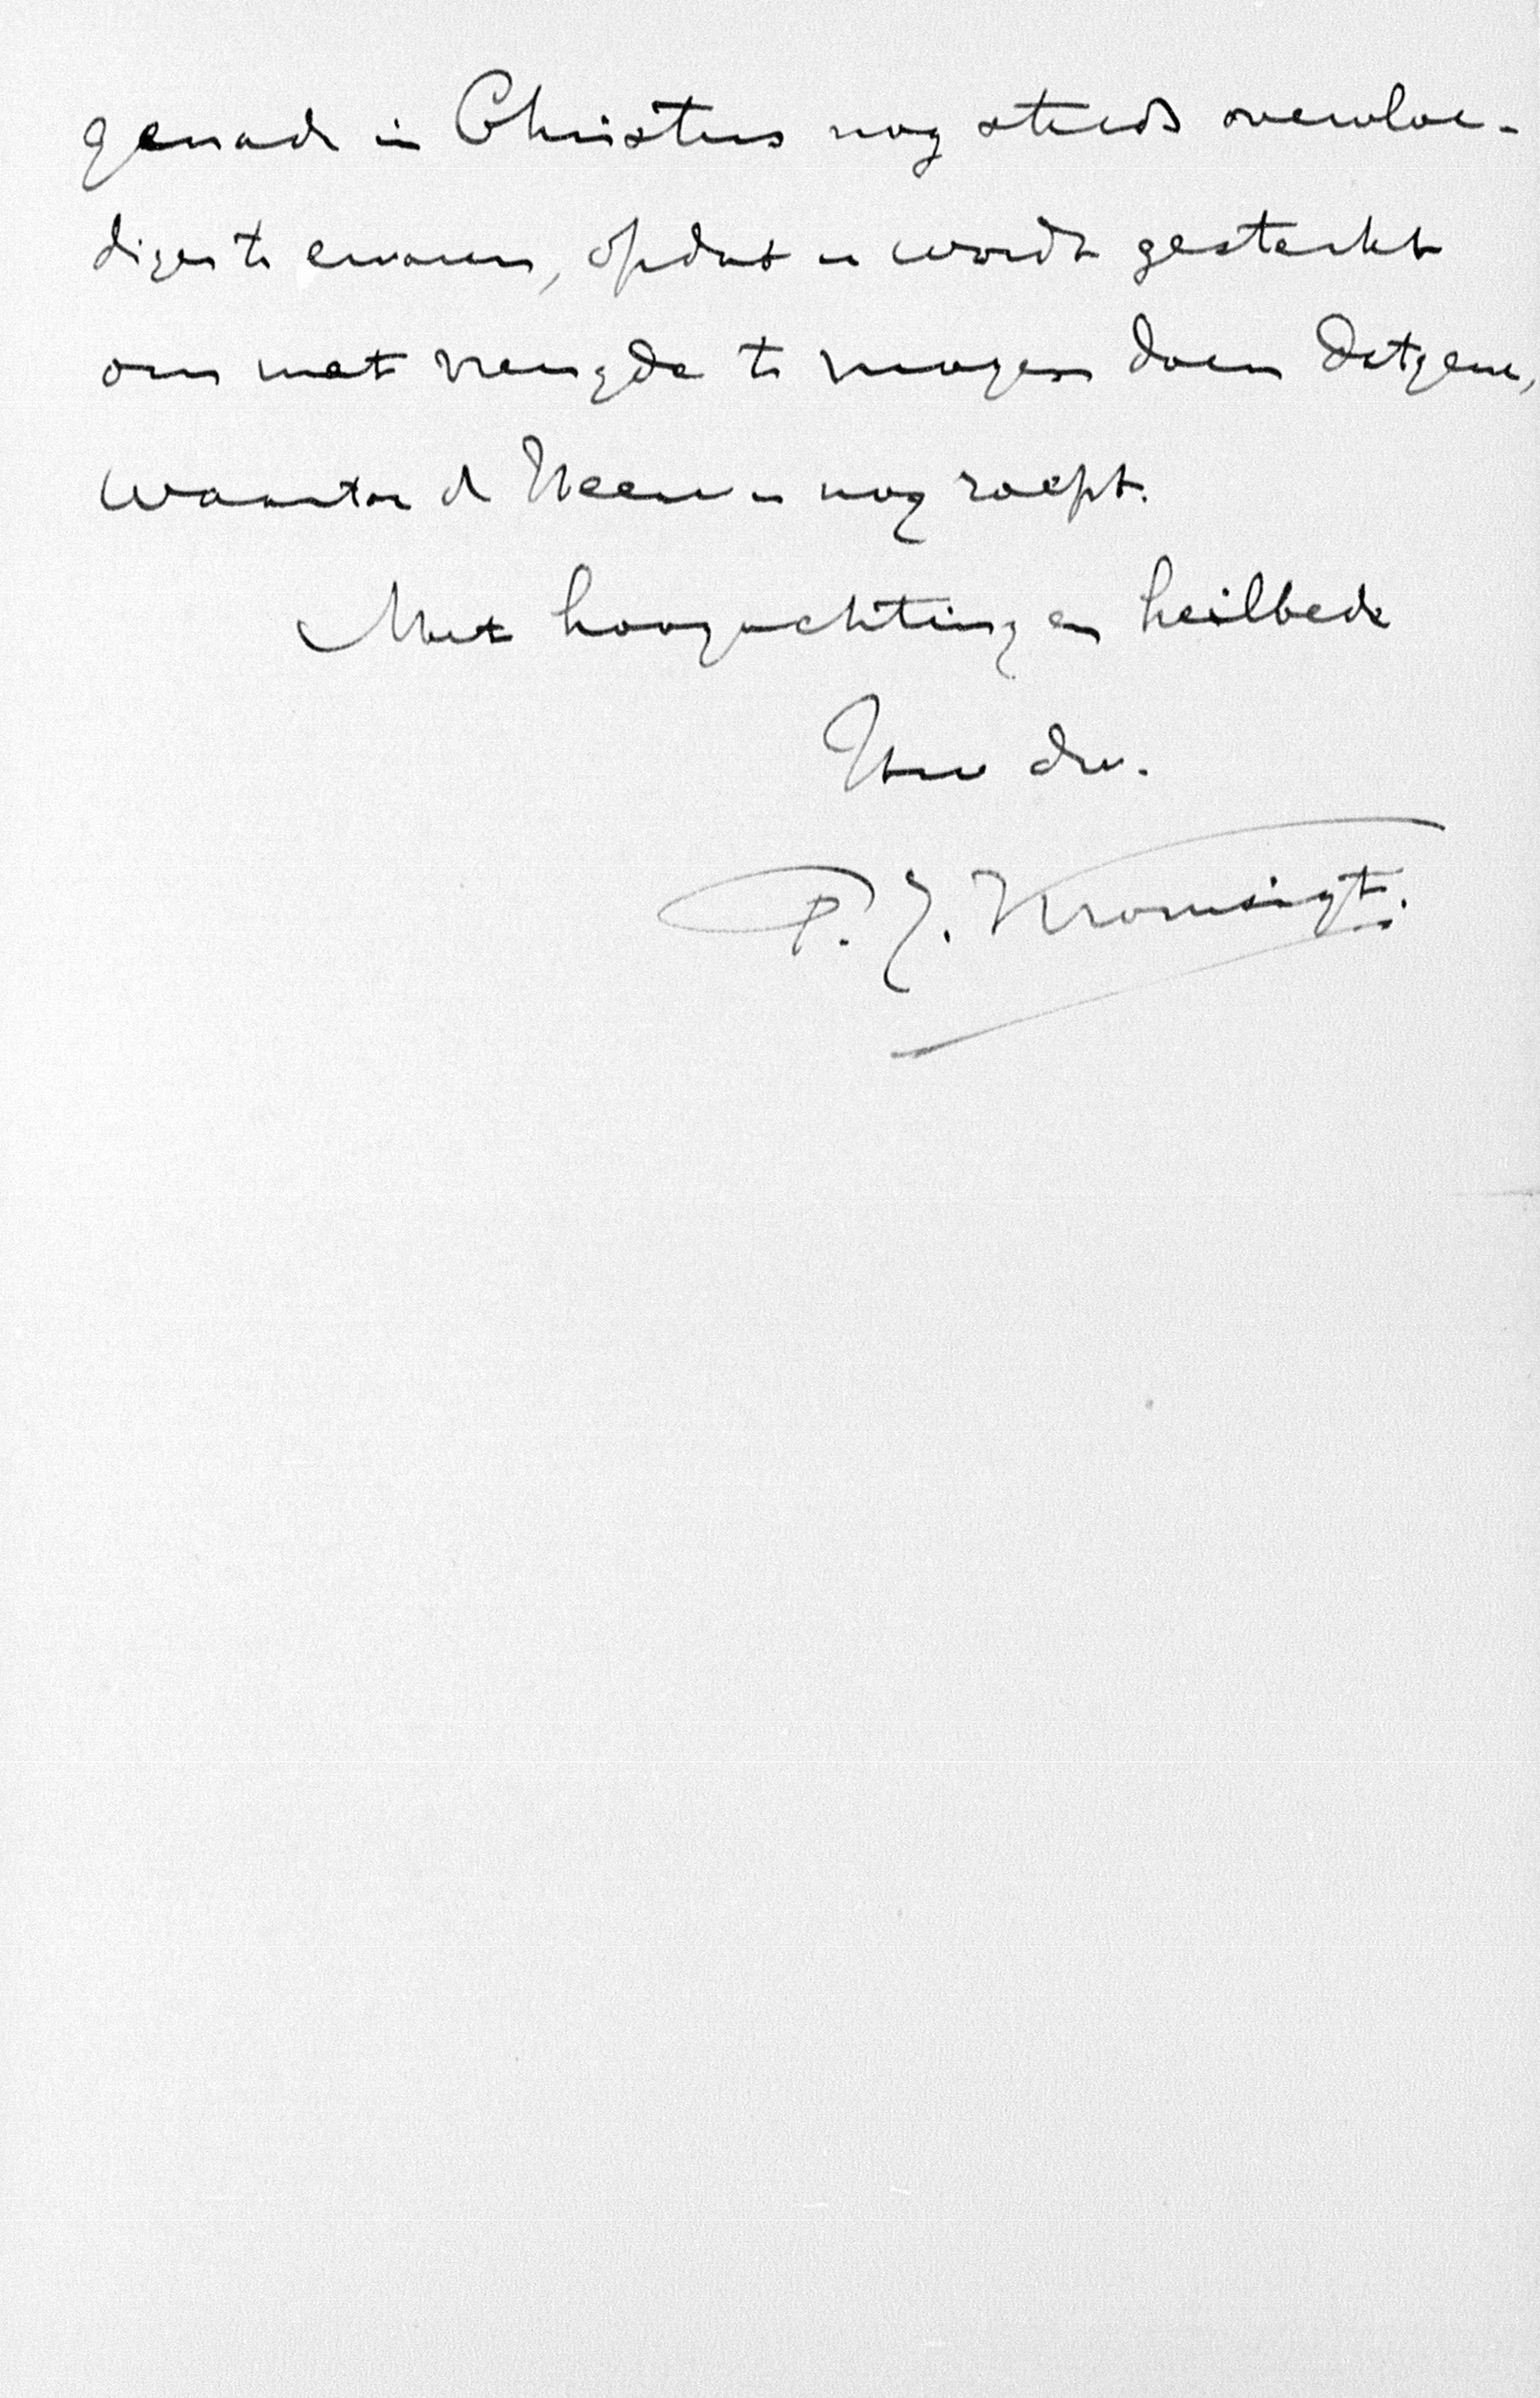 genade in Christus nog steeds overvloe-
diger te ervaren, opdat u wordt gesterkt
om met vreugde te mogen doen datgene,
waartoe de Heere u nog roept.
Met hoogachting en heilbede
Uw dw.
P. J. Kromsigt.